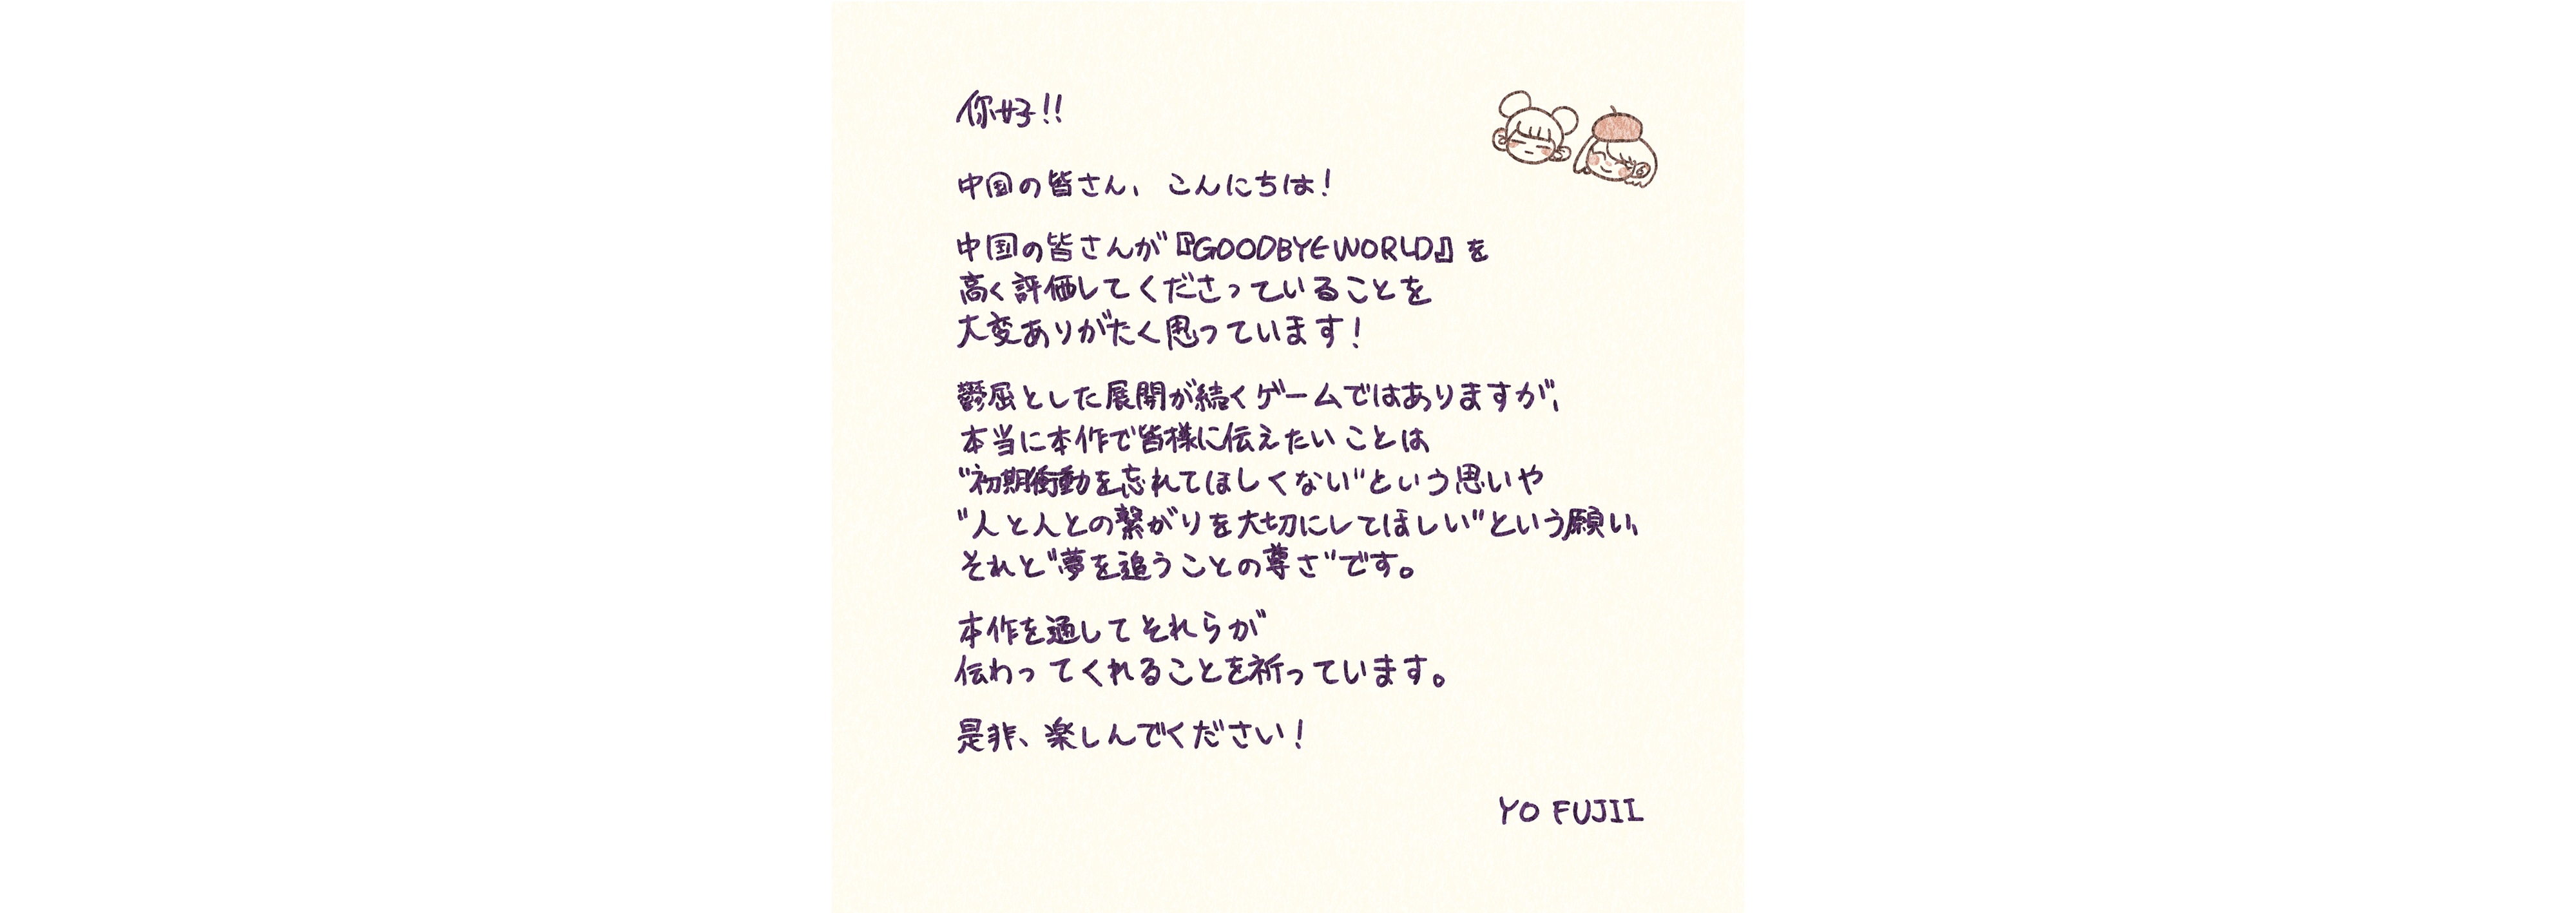 你好!!
中国の皆さん、こんにちは!
中国の皆さんが『GOODBYE WORLD』を
高く評価してくださっていることを
大変ありがたく思っています!
鬱屈とした展開が続くゲームではありますが、
本当に本作で皆様に伝えたいことは
"初期衝動を忘れてほしくない"という思いや
"人と人との繋がりを大切にしてほしい"という願い、
それと"夢を追うことの尊さ"です。
本作を通してそれらが
伝わってくれることを祈っています。
是非、楽しんでください!
YO FUJII